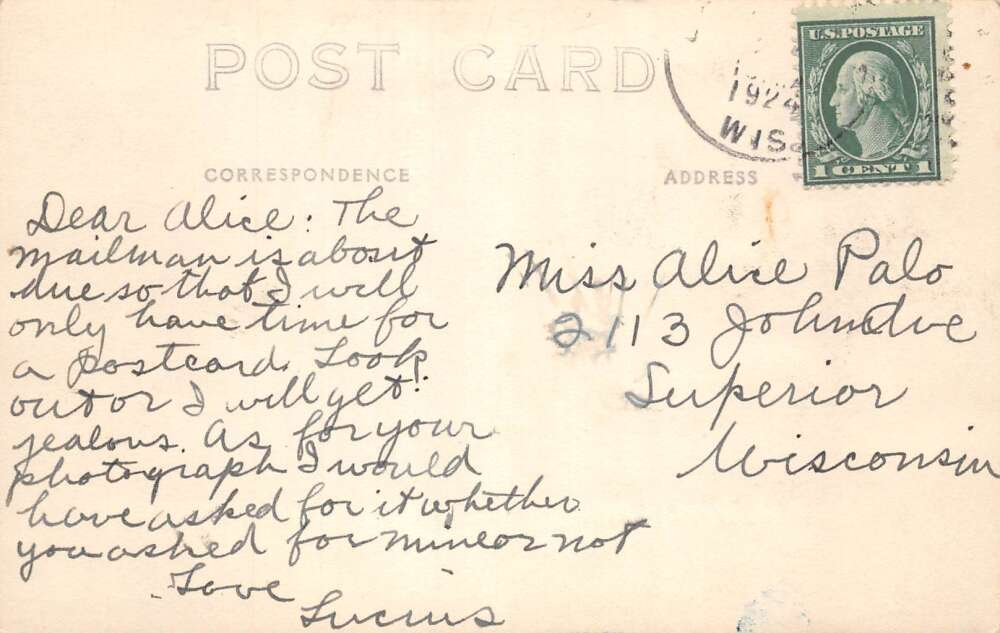 POST CARD
U.S. POSTAGE
1 CENT 1
1924
WIS.
CORRESPONDENCE
ADDRESS
Dear Alice: The
mailman is about
due so that I will
only have time for
a postcard. Look
out or I will get!
jealous. As for your
photograph I would
have asked for it whether
you asked for mine or not
Love
Lucius
Miss Alice Palo
2113 John Ave
Superior
Wisconsin